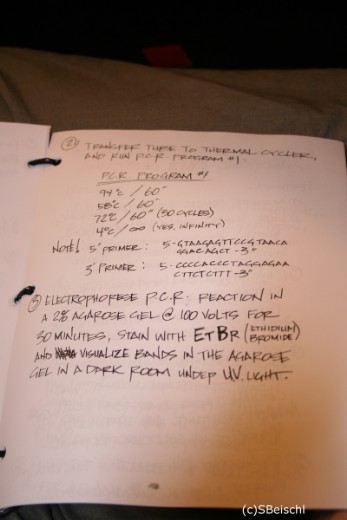 ② TRANSFER TUBE TO THERMAL CYCLER,
AND RUN P.C.R. PROGRAM #1.
P.C.R. PROGRAM #1
94°C / 60"
58°C / 60"
72°C / 60" (30 CYCLES)
4°C / ∞ (YES, INFINITY)
NOTE! 5' PRIMER: 5-GTAAGAGTTCCGTAACA
GGACAGCT-3"
3' PRIMER: 5-CCCCACCCTAGGAGAA
CTTCTCTTT-3"
③ ELECTROPHORESE P.C.R. REACTION IN
A 2% AGAROSE GEL @ 100 VOLTS FOR
30 MINUTES, STAIN WITH ETBR (ETHIDIUM
BROMIDE)
AND VISUALIZE BANDS IN THE AGAROSE
GEL IN A DARK ROOM UNDER U.V. LIGHT.
(c)SBeischl